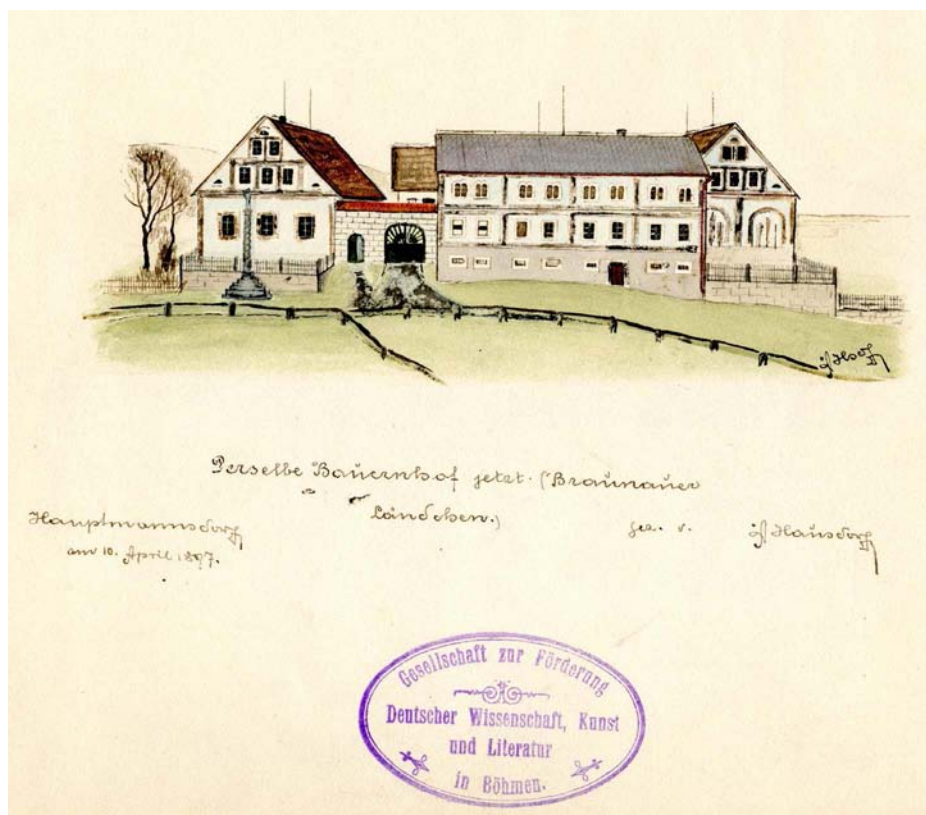 Derselbe Bauernhof jetzt. (Braunauer
Ländchen.)
Hauptmannsdorf
am 10. April 1897.
gez. v. Hausdorf
Gesellschaft zur Förderung
Deutscher Wissenschaft, Kunst
und Literatur
in Böhmen.